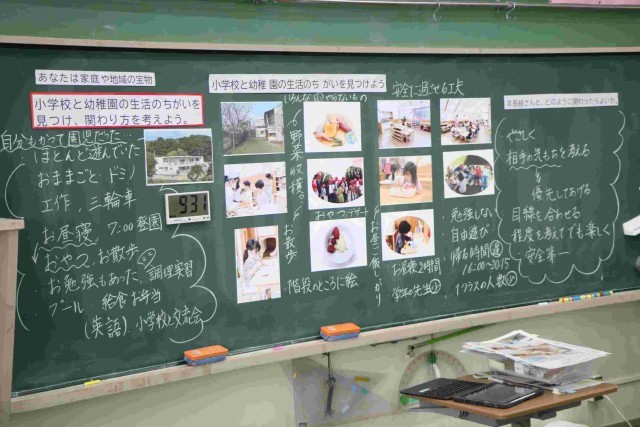 あなたは家庭や地域の宝物
小学校と幼稚園の生活のちがいを
見つけ、関わり方を考えよう。
自分もかつて園児だった…
ほとんど遊んでいた
おままごと・ドミノ
工作, 三輪車
お昼寝, 7:00登園
おやつ, お散歩
お勉強もあった, 調理実習
プール 給食 お弁当
(英語) 小学校と交流会
9:31
小学校と幼稚園の生活のちがいを見つけよう
野菜収穫
お散歩
おやつデザート
階段のところに絵
安全に過せる工夫
お昼寝2時間
学年の先生
勉強しない
自由遊び
帰る時間
16:00~20:15
1クラスの人数
やさしく
相手の気もちを考える
優先してあげる
目線を合わせる
程度を考えてでも楽しく
安全第一